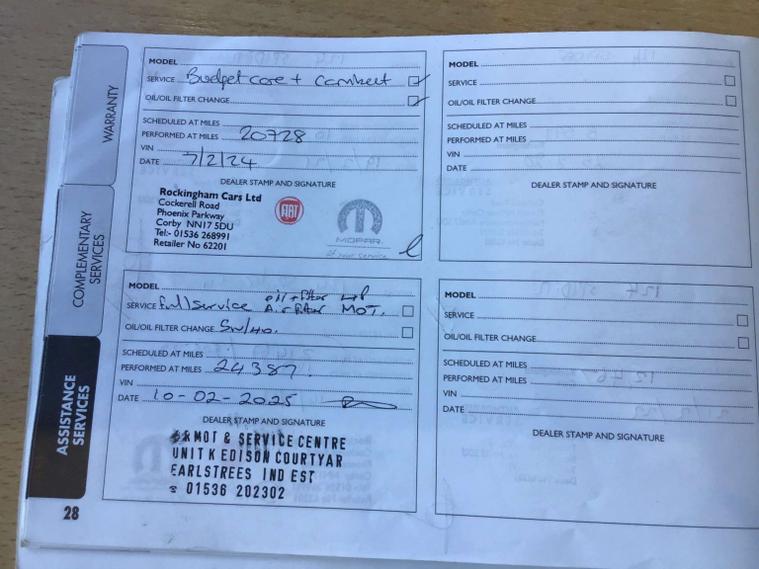 WARRANTY
COMPLEMENTARY
SERVICES
ASSISTANCE
SERVICES
28
MODEL
SERVICE Budget care + Cambelt
OIL/OIL FILTER CHANGE
SCHEDULED AT MILES
PERFORMED AT MILES 20728
VIN
DATE 7/2/24
DEALER STAMP AND SIGNATURE
Rockingham Cars Ltd
Cockerell Road
Phoenix Parkway
Corby NN17 5DU
Tel:- 01536 268991
Retailer No 62201
FIAT
MOPAR
at your service
MODEL
SERVICE
OIL/OIL FILTER CHANGE
SCHEDULED AT MILES
PERFORMED AT MILES
VIN
DATE
DEALER STAMP AND SIGNATURE
MODEL
SERVICE full service oil + filter
Air filter MOT.
OIL/OIL FILTER CHANGE 5W/40.
SCHEDULED AT MILES
PERFORMED AT MILES 24387.
VIN
DATE 10-02-2025
DEALER STAMP AND SIGNATURE
MOT & SERVICE CENTRE
UNIT K EDISON COURTYAR
EARLSTREES IND EST
01536 202302
MODEL
SERVICE
OIL/OIL FILTER CHANGE
SCHEDULED AT MILES
PERFORMED AT MILES
VIN
DATE
DEALER STAMP AND SIGNATURE